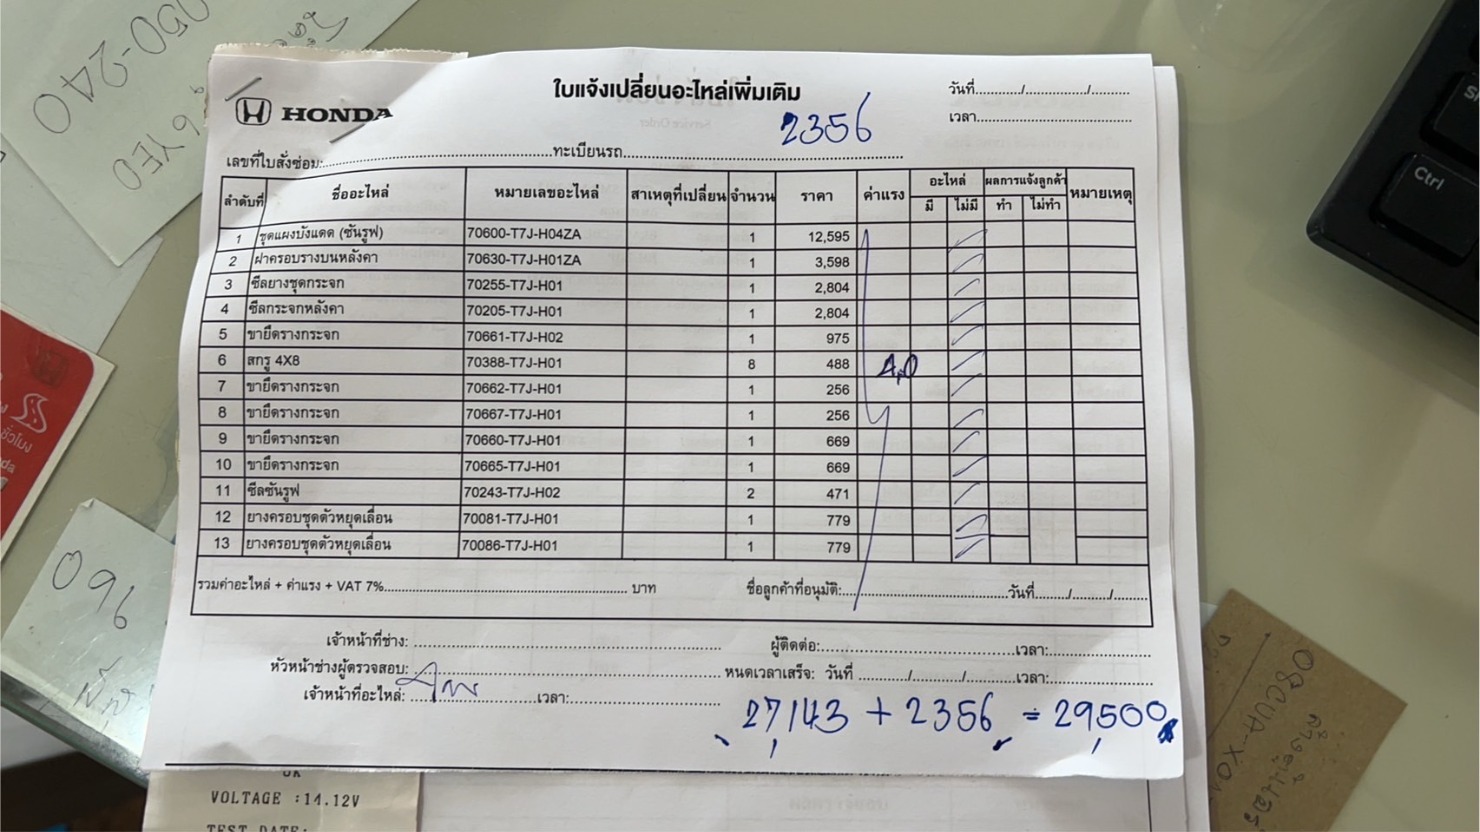 050-240
6YE0
HONDA
ใบแจ้งเปลี่ยนอะไหล่เพิ่มเติม
2356
วันที่............/................/..........
เวลา........................................
เลขที่ใบสั่งซ่อม:............................................................ทะเบียนรถ......................................................................
ลำดับที่ ชื่ออะไหล่ หมายเลขอะไหล่ สาเหตุที่เปลี่ยน จำนวน ราคา ค่าแรง อะไหล่ ผลการแจ้งลูกค้า หมายเหตุ
มี ไม่มี ทำ ไม่ทำ
1 ชุดแผงบังแดด (ซันรูฟ) 70600-T7J-H04ZA 1 12,595
2 ฝาครอบรางบนหลังคา 70630-T7J-H01ZA 1 3,598
3 ซีลยางชุดกระจก 70255-T7J-H01 1 2,804
4 ซีลกระจกหลังคา 70205-T7J-H01 1 2,804
5 ขายึดรางกระจก 70661-T7J-H02 1 975
6 สกรู 4X8 70388-T7J-H01 8 488
7 ขายึดรางกระจก 70662-T7J-H01 1 256
8 ขายึดรางกระจก 70667-T7J-H01 1 256
9 ขายึดรางกระจก 70660-T7J-H01 1 669
10 ขายึดรางกระจก 70665-T7J-H01 1 669
11 ซีลซันรูฟ 70243-T7J-H02 2 471
12 ยางครอบชุดตัวหยุดเลื่อน 70081-T7J-H01 1 779
13 ยางครอบชุดตัวหยุดเลื่อน 70086-T7J-H01 1 779
4.0
รวมค่าอะไหล่ + ค่าแรง + VAT 7%............................................................. บาท ชื่อลูกค้าที่อนุมัติ:.........................................วันที่........./........../.........
เจ้าหน้าที่ช่าง: ............................................................................. ผู้ติดต่อ:................................................เวลา:.........................
หัวหน้าช่างผู้ตรวจสอบ: ............................................................................. หนดเวลาเสร็จ: วันที่ ............/............/............เวลา:.........................
เจ้าหน้าที่อะไหล่: ...............................เวลา:......................................
27,143 + 2356 = 29,500
096
ชั่วโมง
nda
Ctrl
OK
VOLTAGE :14.12V
TEST DATE: